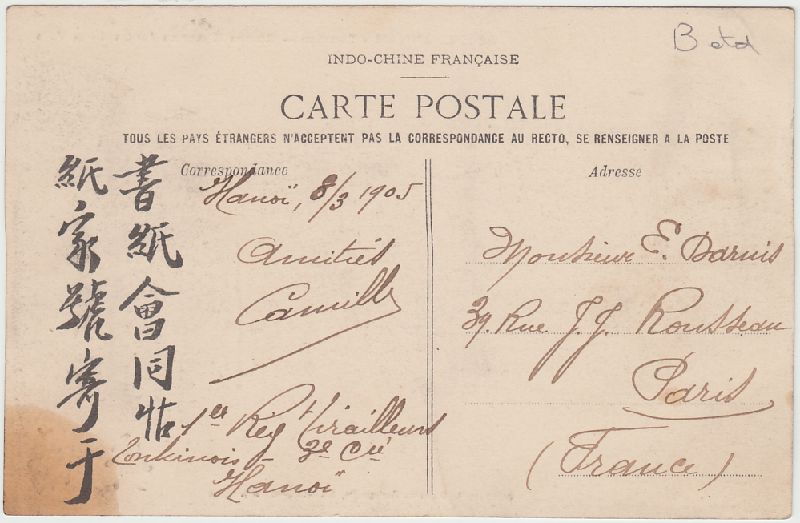 B etd
INDO-CHINE FRANÇAISE
CARTE POSTALE
TOUS LES PAYS ÉTRANGERS N'ACCEPTENT PAS LA CORRESPONDANCE AU RECTO, SE RENSEIGNER A LA POSTE
Correspondance
Adresse
書紙會同帖
紙家號寄于
Hanoï, 8/3 1905
Amitiés
Camille
1er Regt Tirailleurs
Tonkinois - 3e Cie
Hanoï
Monsieur E. Darnis
39 Rue J. J. Rousseau
Paris
(France)